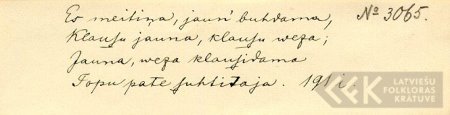 Es meitiņa, jaun' buhdama, № 3065.
Klausu jauna, klausu weza;
Jauna, weza klausidama
Topu pate suhtitaja. 191
LATVIEŠU
FOLKLORAS
KRĀTUVE